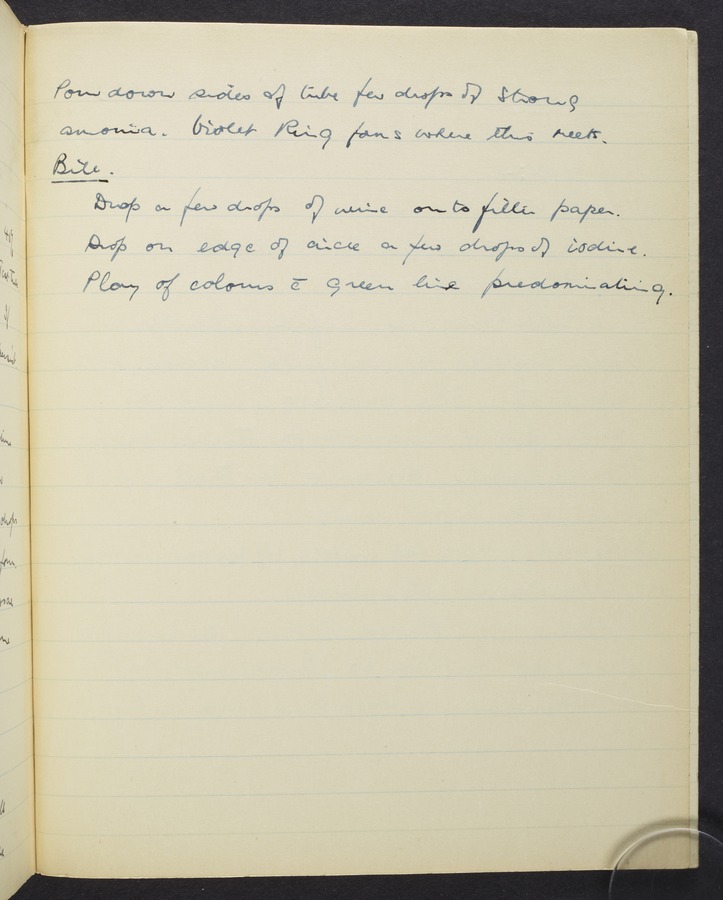 Pour down sides of tube few drops of Strong
amonia. Violet Ring forms where this meets.
Bile.
Drop a few drops of urine onto filter paper.
Drop on edge of circle a few drops of iodine.
Play of colours c̄ green line predominating.